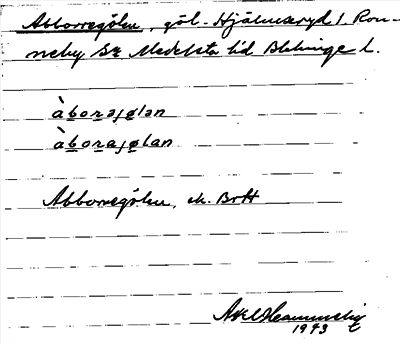 Abborregölen, göl - Hjälmseryd / Ron-
neby Sn Medelsta hd Blekinge l.
àborəjølən
àborajølan
Abborregölen, ek. Br
1943